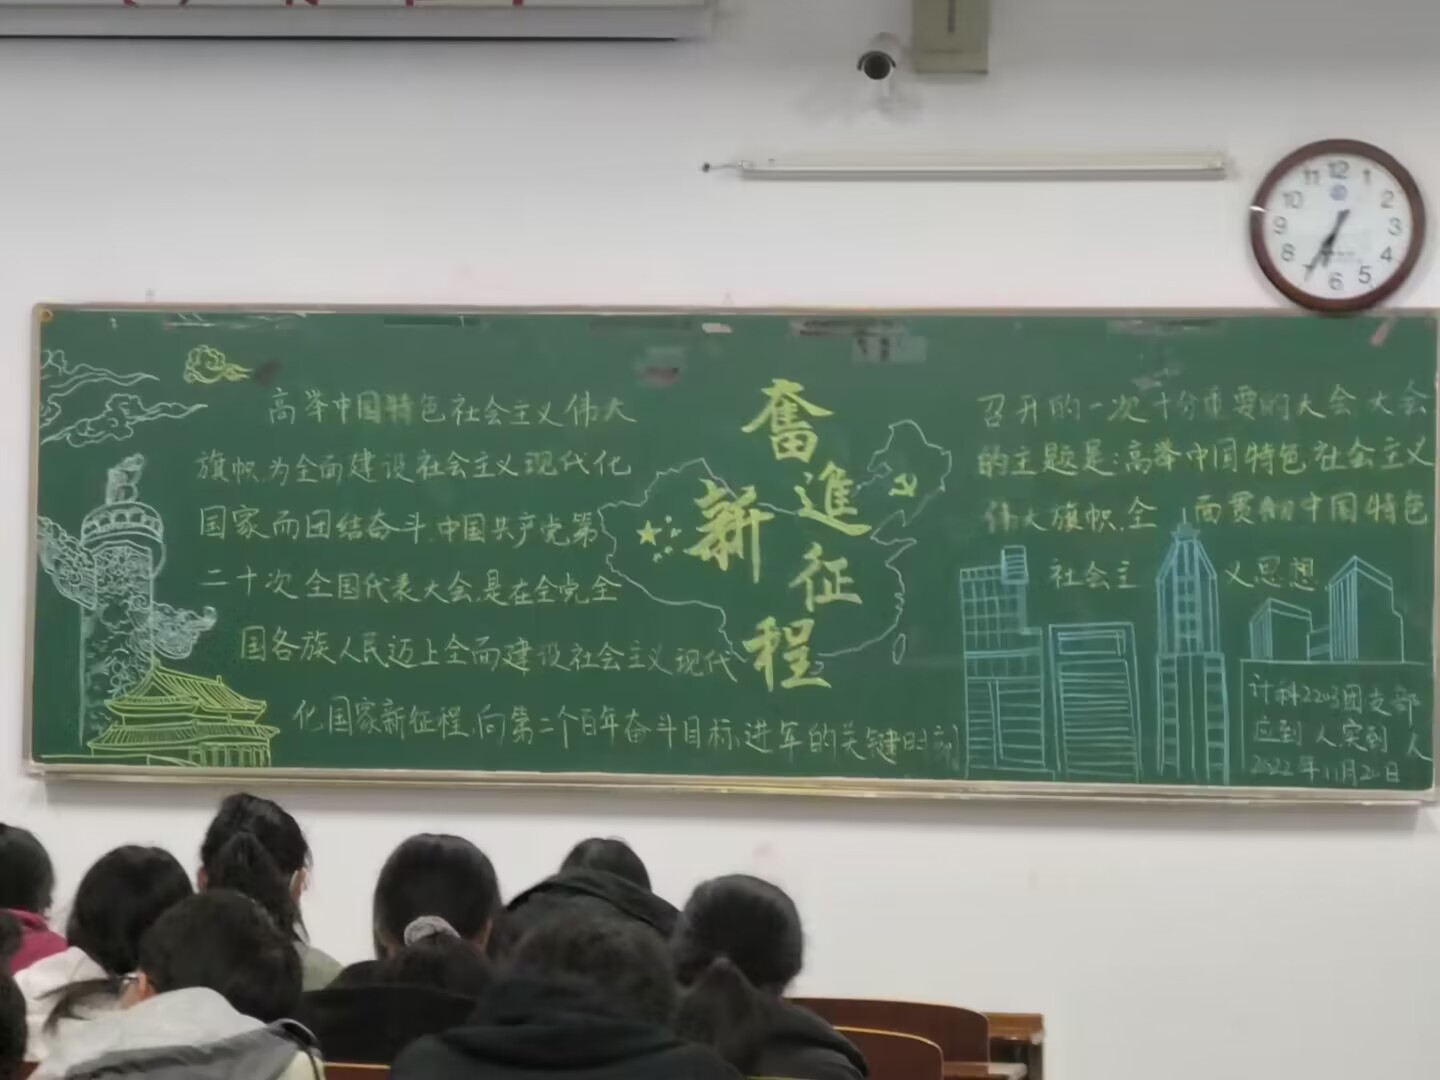 高举中国特色社会主义伟大
旗帜,为全面建设社会主义现代化
国家而团结奋斗.中国共产党第
二十次全国代表大会,是在全党全
国各族人民迈上全面建设社会主义现代
化国家新征程,向第二个百年奋斗目标,进军的关键时刻
奮進
新征程
召开的一次十分重要的大会 大会
的主题是:高举中国特色社会主义
伟大旗帜,全面贯彻中国特色
社会主义思想
计科2203团支部
应到 人,实到 人
2022年11月20日
12 1 2 3 4 5 6 8 9 10 11